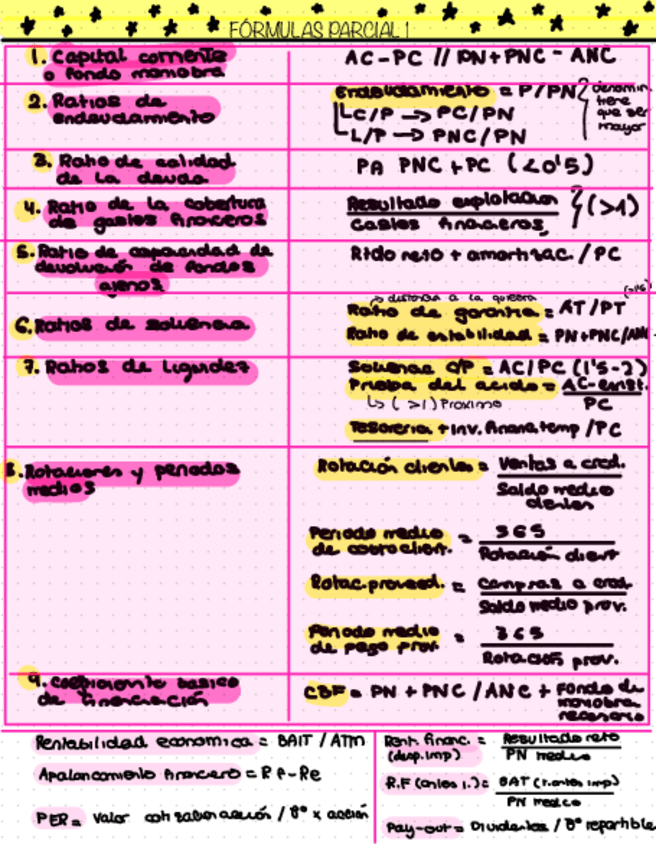 FÓRMULAS PARCIAL 1
1. Capital corriente
o fondo maniobra
AC-PC // PN+PNC - ANC
2. Ratios de
endeudamiento
Endeudamiento = P/PN
C/P → PC/PN
L/P → PNC/PN
denomin.
tiene
que ser
mayor
3. Ratio de calidad
de la deuda
PA PNC + PC (<0'5)
4. Ratio de la cobertura
de gastos financieros
Resultado explotacion
Gastos financeros
(>1)
5. Ratio de capacidad de
devolución de fondos
ajenos
Rtdo neto + amortizac. / PC
6. Ratios de solvencia
↳ distancia a la quiebra
Ratio de garantia = AT/PT
Ratio de estabilidad = PN+PNC/AN
7. Ratios de liquidez
Solvencia C/P = AC/PC (1'5-2)
Prueba del acido = AC-exist.
PC
↳ (>1) Proximo
Tesoreria + Inv. Financ. temp / PC
8. Rotaciones y periodos
medios
Rotación clientes = Ventas a cred.
Saldo medio
clientes
Periodo medio
de cobro client. = 365
Rotación client
Rotac. proveed. = Compras a cred.
Saldo medio prov.
Periodo medio
de pago prov. = 365
Rotación prov.
9. Coeficiente basico
de financiación
CBF = PN + PNC / ANC + Fondo de
maniobra
necesario
Rentabilidad economica = BAIT / ATM
Apalancamiento financiero = RF-Re
PER = Valor cotización acción / Bº x acción
Rent. financ. =
(desp. imp)
Resultado neto
PN medio
R.F (antes i.) = BAT (r. antes imp)
PN medio
Pay-out = Dividendos / Bº repartible